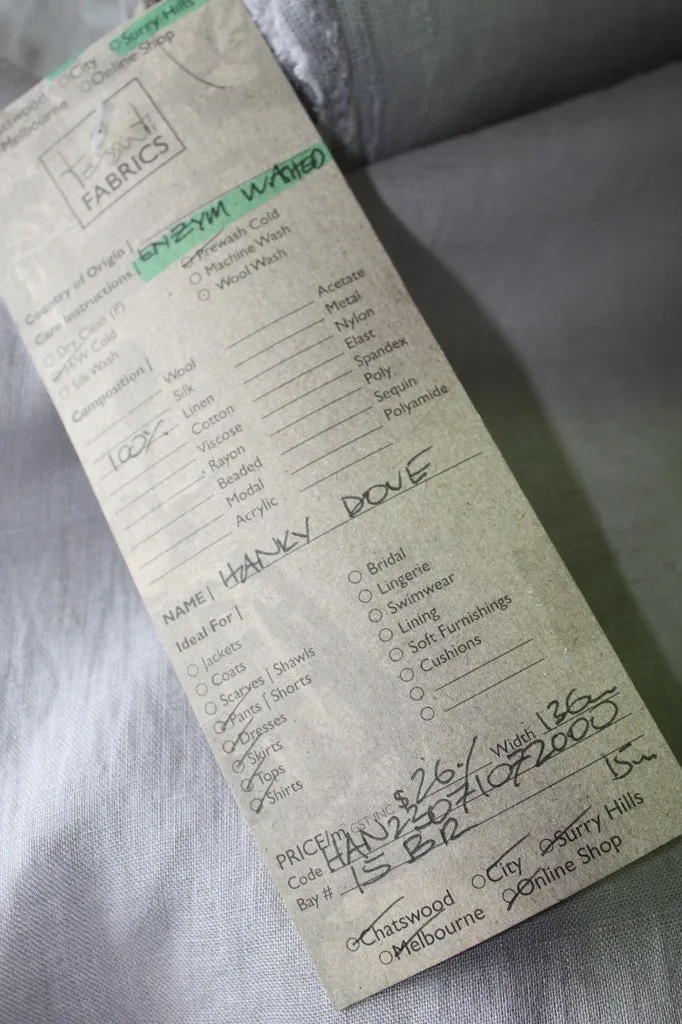 City
Surry Hills
Melbourne
Online Shop
Tessuti
FABRICS
Country of Origin |
ENZYM WASHED
Care Instructions |
Dry Clean (P)
Prewash Cold
H/W Cold
Machine Wash
Silk Wash
Wool Wash
Composition |
Wool
Acetate
Silk
Metal
100% Linen
Nylon
Cotton
Elast
Viscose
Spandex
Rayon
Poly
Beaded
Sequin
Modal
Polyamide
Acrylic
NAME | HANKY DOVE
Ideal For |
Jackets
Coats
Scarves | Shawls
Pants | Shorts
Dresses
Skirts
Tops
Shirts
Bridal
Lingerie
Swimwear
Lining
Soft Furnishings
Cushions
PRICE/m GST INC $26 Width 136cm
Code HAN22071072000
Bay # 15 BR 15m
Chatswood
City
Surry Hills
Melbourne
Online Shop